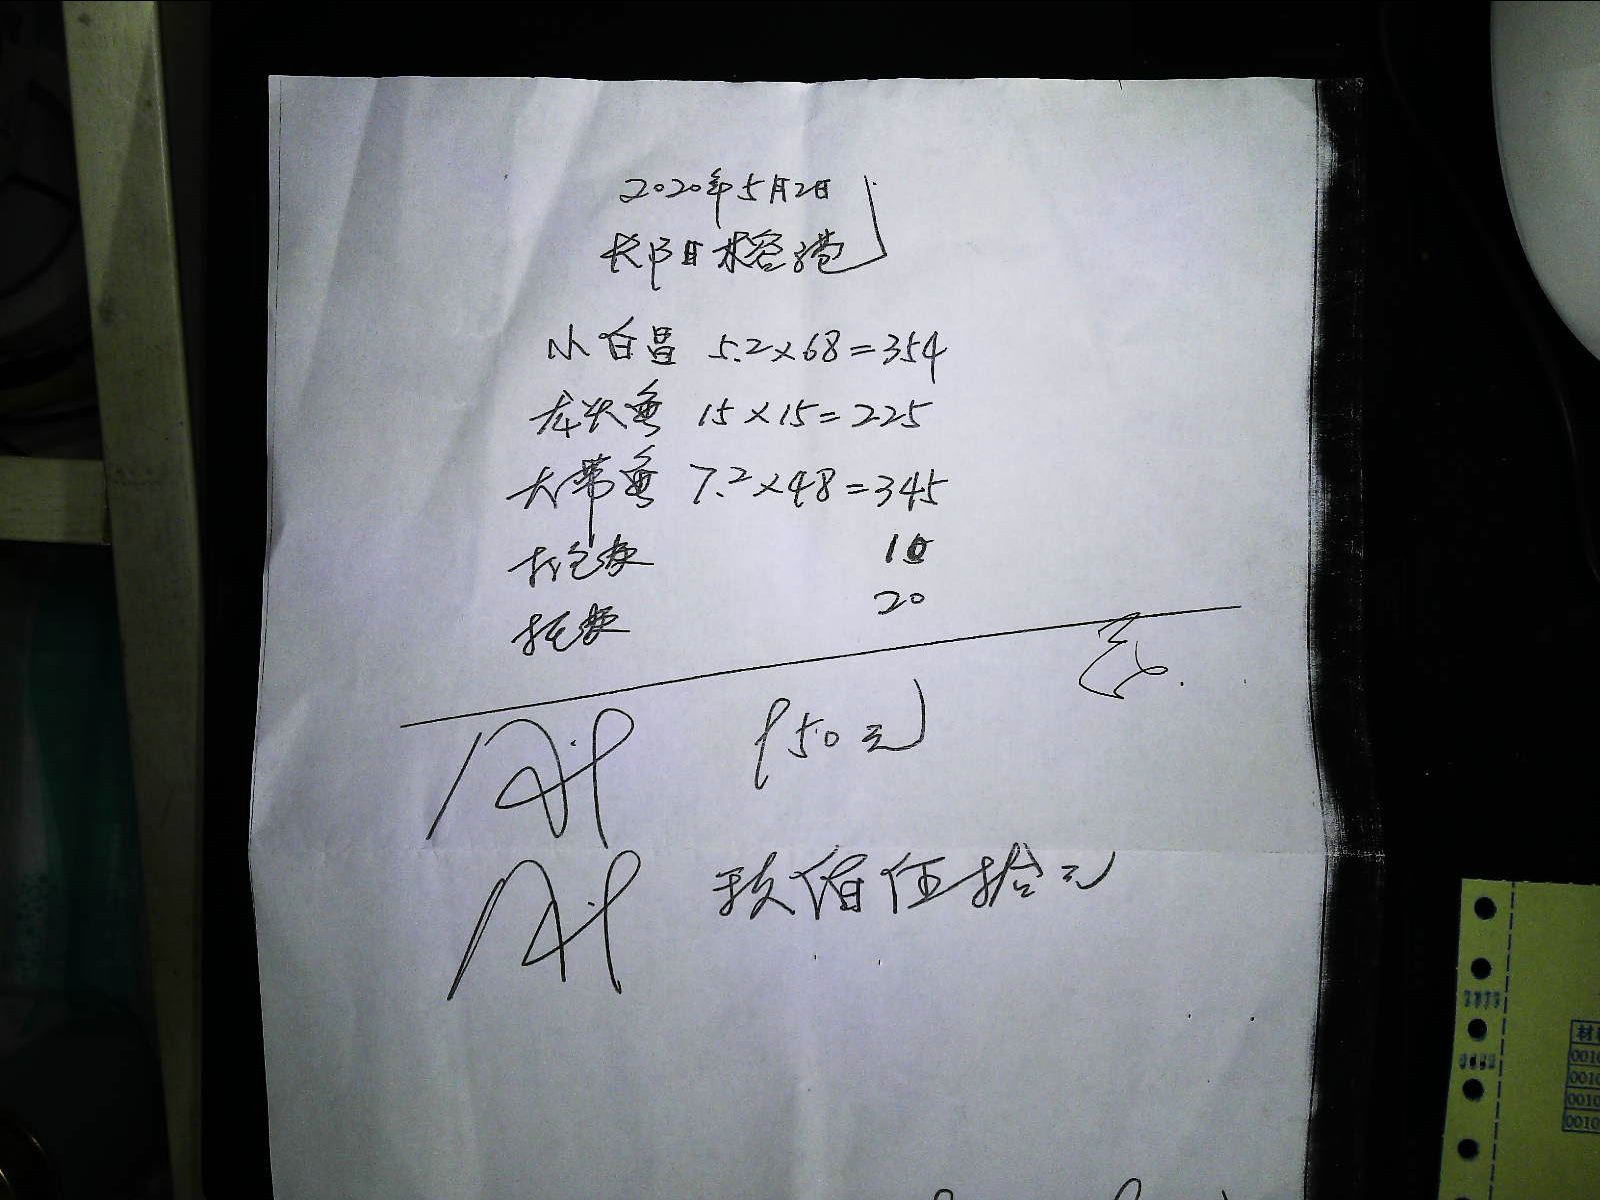 2020年5月2日
长阳榕港
小白昌 5.2×68=354
龙头鱼 15×15=225
大带鱼 7.2×48=345
打包费 10
托费 20
950元
玖佰伍拾元
0010
0010
0010
0010